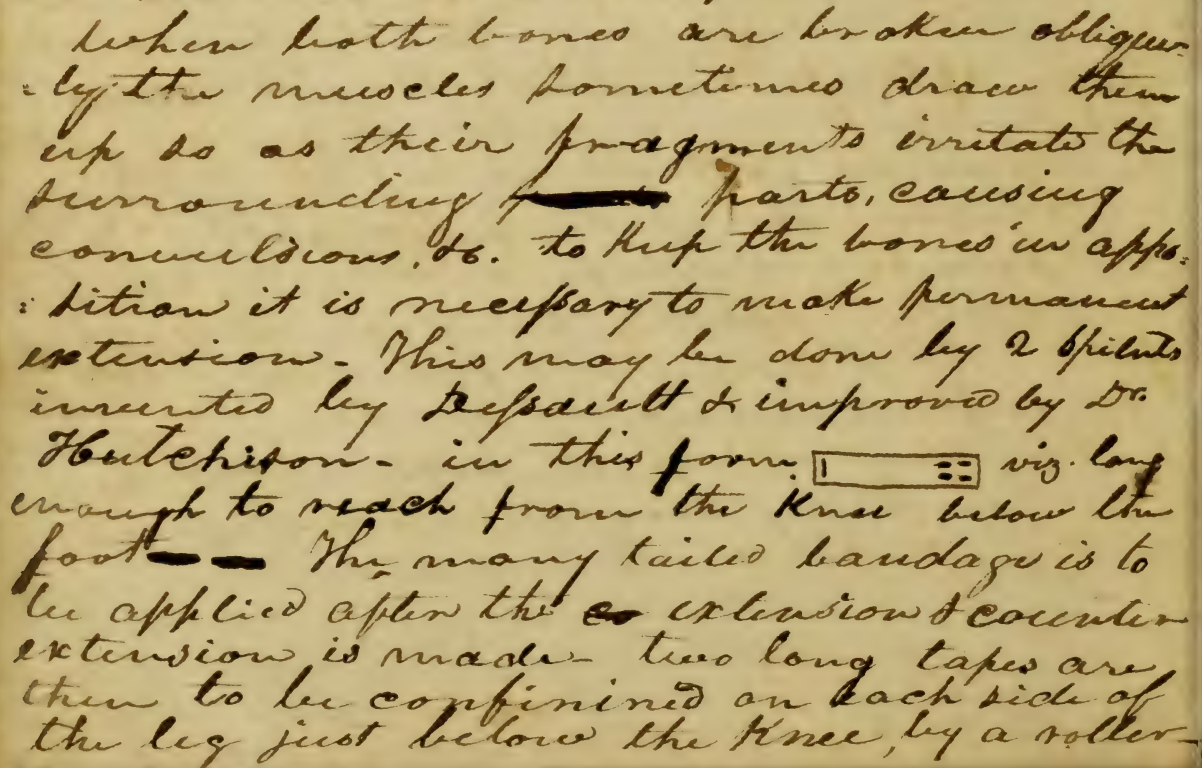 when both bones are broken oblique-
:ly the muscles sometimes draw them
up so as their fragments irritate the
surrounding parts, causing
convulsions, &c. to keep the bones in appo:
:sition it is necessary to make permanent
extension - This may be done by 2 splints
invented by Dessault & improved by Dr.
Hutchison - in this form. viz. long
enough to reach from the Knee below the
foot The many tailed bandage is to
be applied after the extension & counter
extension is made - two long tapes are
then to be confinined on each side of
the leg just below the Knee, by a roller-